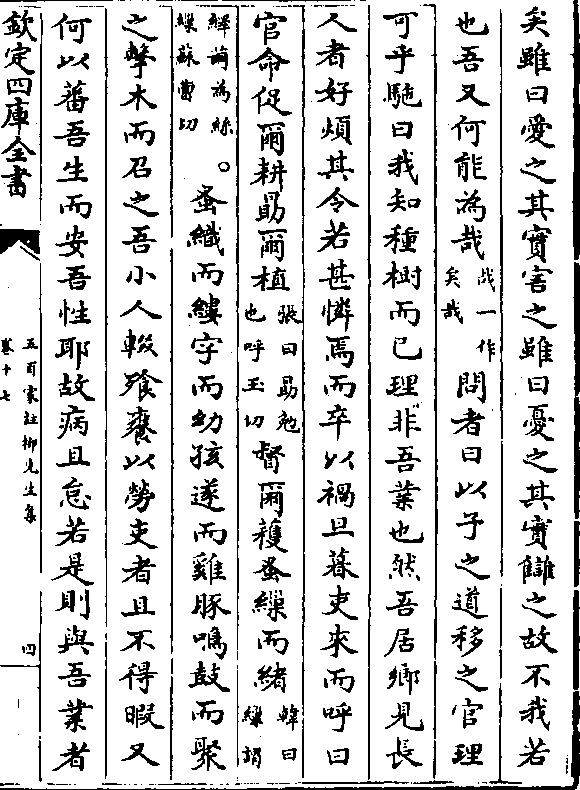 矣雖曰愛之其實害之雖曰憂之其實讎之故不我若
也吾又何能為哉哉一作矣哉問者曰以子之道移之官理
可乎駞曰我知種樹而已理非吾業也然吾居鄉見長
人者好煩其令若甚憐焉而卒以禍旦暮吏來而呼曰
官命促爾耕勗爾植張曰勗勉也呼玉切督爾穫蚤繰而緒韓曰繰謂
繹繭為絲繰蘇曹切。蚤織而縷字而幼孩遂而雞豚鳴鼓而聚
之擊木而召之吾小人輟飱饔以勞吏者且不得暇又
何以蕃吾生而安吾性耶故病且怠若是則與吾業者
欽定四庫全書
五百家註柳先生集
卷十七
四